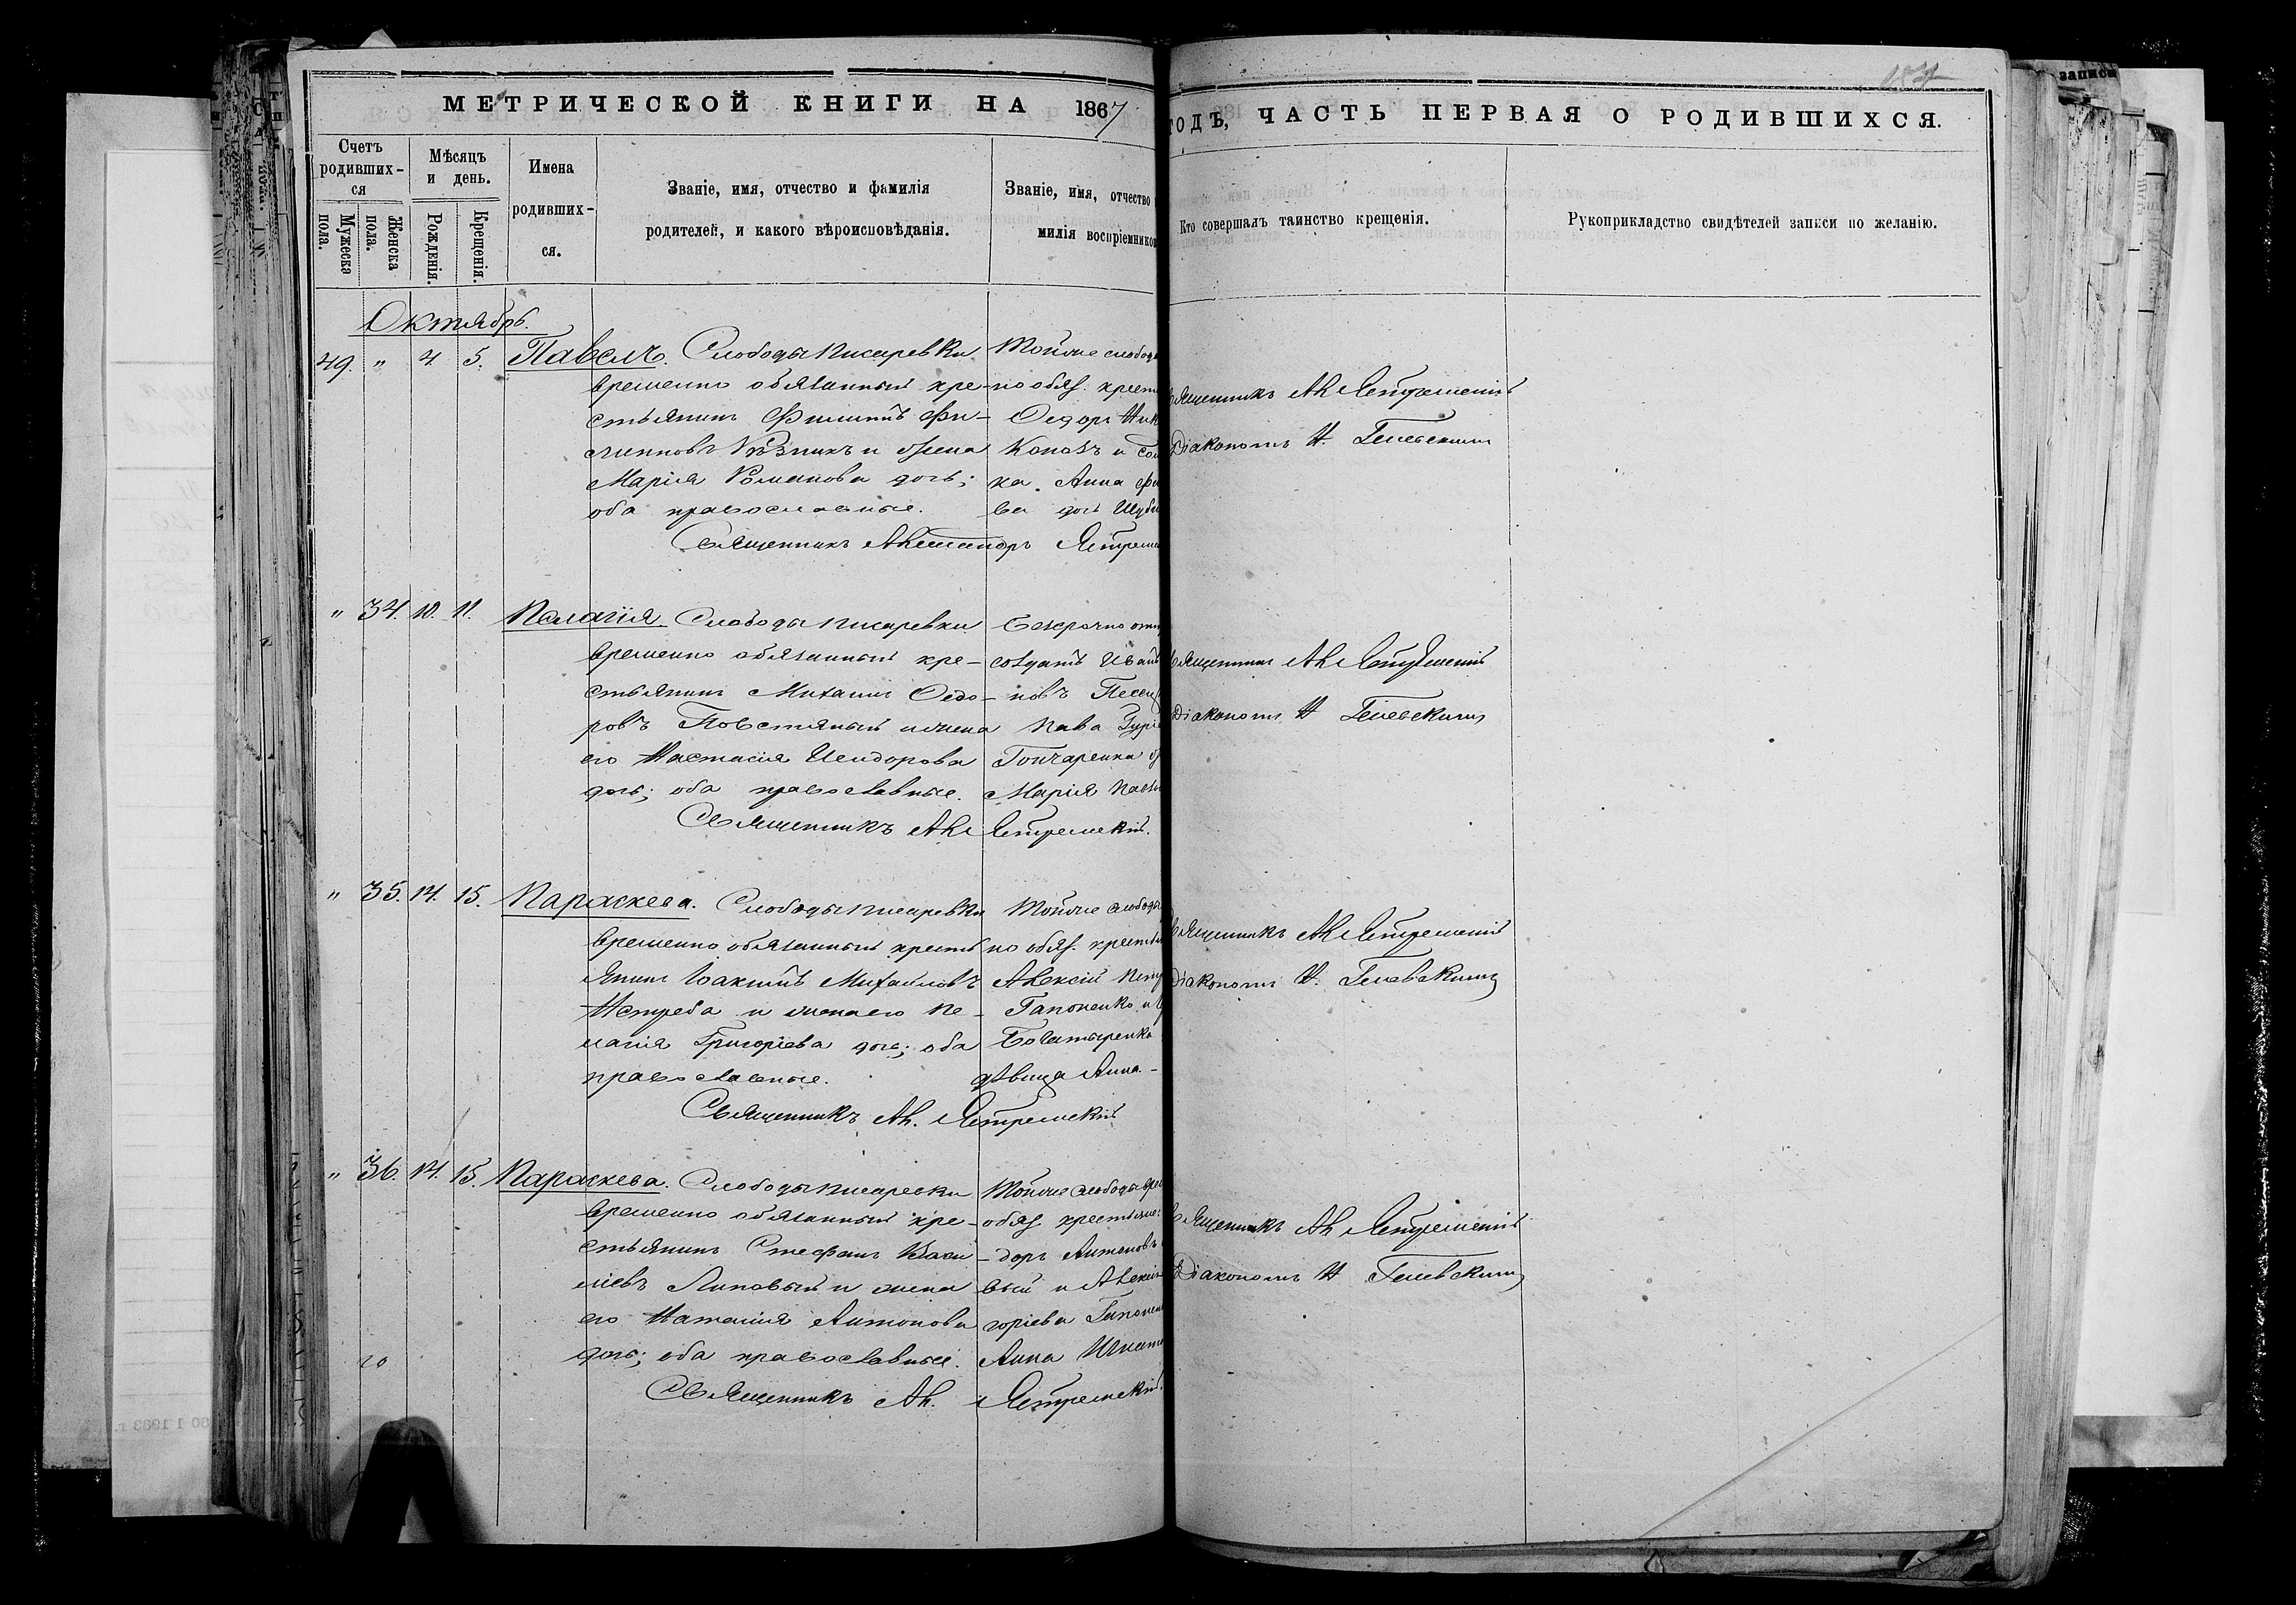 МЕТРИЧЕСКОЙ КНИГИ НА 1867
ГОДЪ, ЧАСТЬ ПЕРВАЯ О РОДИВШИХСЯ.
Счетъ родивших-ся
Мужеска пола.
Женска пола.
Мѣсяцъ и день.
Рожденія.
Крещенія.
Имена родивших-ся.
Званіе, имя, отчество и фамилія
родителей, и какого вѣроисповѣданія.
Званіе, имя, отчество
милія воспріемников
Кто совершалъ таинство крещенія.
Рукоприкладство свидѣтелей записи по желанію.
Октябрь.
49. " 4. 5. Павелъ. Слободы Писаревки
временно обязанный кре-
стьянинъ Филиппъ Фи-
липповъ и жена
Марія Романова дочь;
оба православные.
Священникъ Александръ
Тойже слободы
но обяз. крест
Федоръ Ник
Коновъ и
ка Анна Фи
ва дочь
Священникъ Ал.
Діакономъ Н.
" 34. 10. 11. Пелагія. Слободы Писаревки
временно обязанный кре-
стьянинъ Михаилъ Федо-
ровъ Повстяный и жена
его Настасія Исидорова
дочь; оба православные.
Священникъ Ал. Ястремскій.
Безсрочно отп
солдатъ Иван
новъ
Гончаренка
Марія
Священникъ Ал. Ястремскій
Діакономъ Н
" 35. 14. 15. Параскева. Слободы Писаревки
временно обязанный кресть
янинъ Іоакимъ Михайловъ
Ястреба и жена его Пе-
лагія Григоріева дочь; оба
православные.
Священникъ Ал. Ястремскій
Тойже слободы
но обяз. крестья
Алексій Петр
Гапоненко и
Богатыренко
дѣвица Анна.
Священникъ Ал. Ястремскій
Діакономъ Н.
" 36. 14. 15. Параскева. Слободы Писаревки
временно обязанный кре-
стьянинъ Стефанъ Васи
ліевъ Липовый и жена
его Наталія Антонова
дочь; оба православные.
Священникъ Ал. Ястремскій
Тойже слободы вре
обяз. крестьяне:
доръ Антоновъ
вый и Алексій
горіева Гапонен
Анна Игнат
Священникъ Ал. Ястремскій
Діакономъ Н